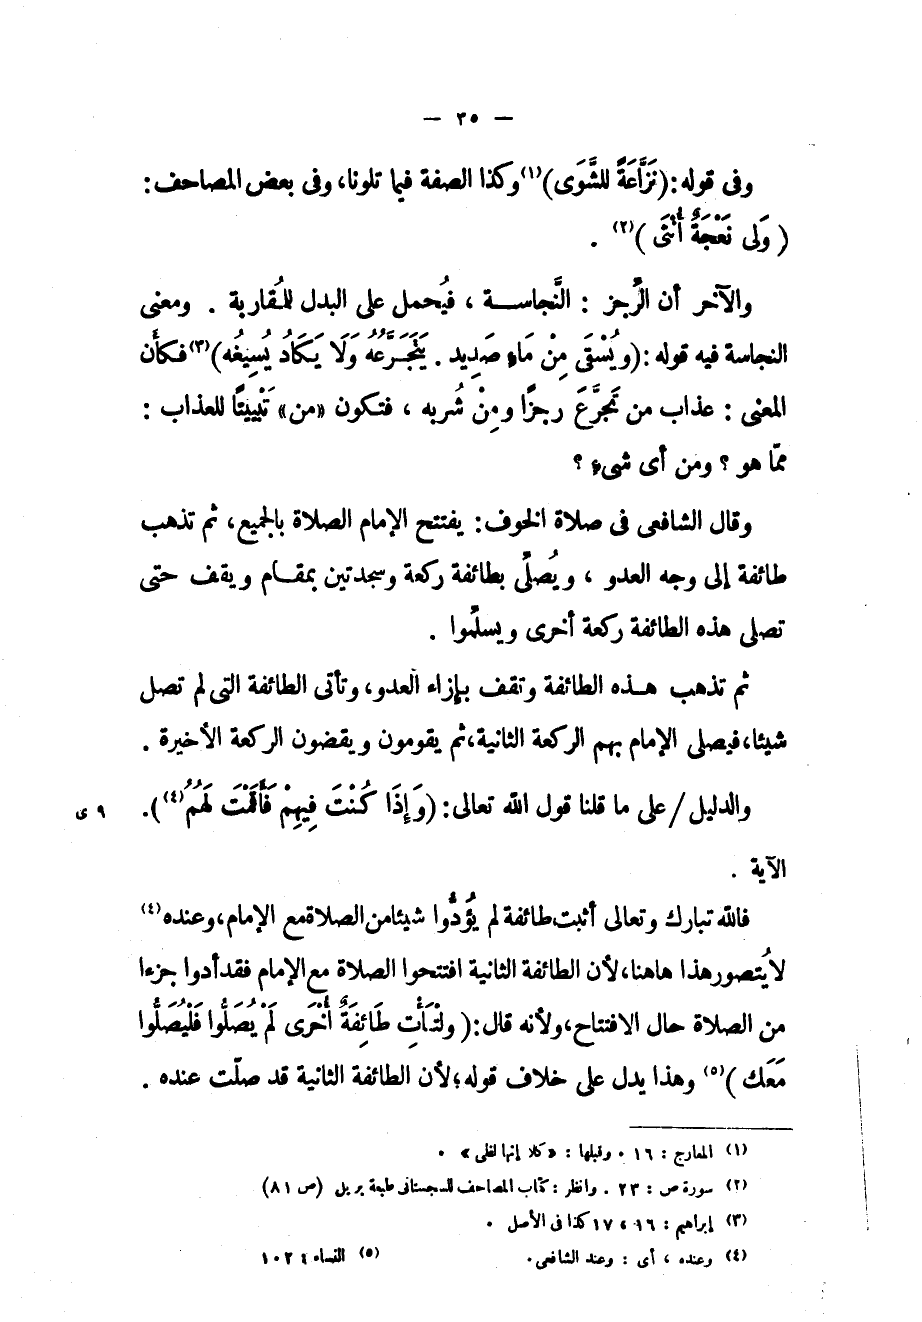 — ٣٥ —
وفى قوله: (نَزَّاعَةً للشَّوَى)(١) وكذا الصفة فيما تلونا، وفى بعض المصاحف :
( وَلى نَعْجَةٌ أُنْثَى )(٢) .
والآخر أن الرُّجز : النَّجاسة ، فيُحمل على البدل للمُقاربة . ومعنى
النجاسة فيه قوله : (ويُسْقَى مِنْ مَاءٍ صَدِيد . يَتَجَرَّعُهُ وَلَا يَكَادُ يُسِيغُه)(٣) فكأن
المعنى : عذاب من تَجرَّعَ رجزًا ومِنْ شُربه ، فتكون «من» تَبْيِيتًا للعذاب :
ممّا هو ؟ ومن أى شىء ؟
وقال الشافعى فى صلاة الخوف : يفتتح الإمام الصلاة بالجميع، ثم تذهب
طائفة إلى وجه العدو ، ويُصلِّى بطائفة ركعة وسجدتين بمقام ويقف حتى
تصلى هذه الطائفة ركعة أخرى ويسلِّموا .
ثم تذهب هذه الطائفة وتقف بإزاء العدو، وتأتى الطائفة التى لم تصل
شيئا، فيصلى الإمام بهم الركعة الثانية، ثم يقومون ويقضون الركعة الأخيرة .
والدليل / على ما قلنا قول الله تعالى : (وَإِذَا كُنْتَ فِيهِمْ فَأَقَمْتَ لَهُمُ(٤)).
٩ ى
الآية .
فالله تبارك وتعالى أثبت طائفة لم يُؤدُّوا شيئا من الصلاة مع الإمام، وعنده(٤)
لا يُتصور هذا هاهنا، لأن الطائفة الثانية افتتحوا الصلاة مع الإمام فقد أدوا جزءا
من الصلاة حال الافتتاح، ولأنه قال : ( ولتَأتِ طَائِفَةٌ أُخْرَى لَمْ يُصَلُّوا فَلْيُصَلُّوا
مَعَك )(٥) وهذا يدل على خلاف قوله؛ لأن الطائفة الثانية قد صلّت عنده .
(١) المعارج : ١٦ . وقبلها : «كلا إنها لظى» .
(٢) سورة ص : ٢٣ . وانظر : كتاب المصاحف للسجستانى طبعة بريل (ص ٨١)
(٣) إبراهيم : ١٦ ، ١٧ كذا فى الأصل .
(٤) وعنده ، أى : وعند الشافعى . (٥) النساء : ١٠٢